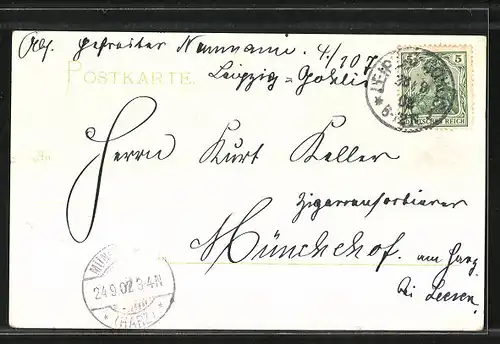 Abs. Gefreiter Naumann. 4./107.
POSTKARTE.
Leipzig=Gohlis
5
DEUTSCHES REICH
An
Herrn Kurt Keller
Zigarrensortierer
Münchehof. am Harz
bei Seesen.
24.9.02 3-4N
(HARZ)